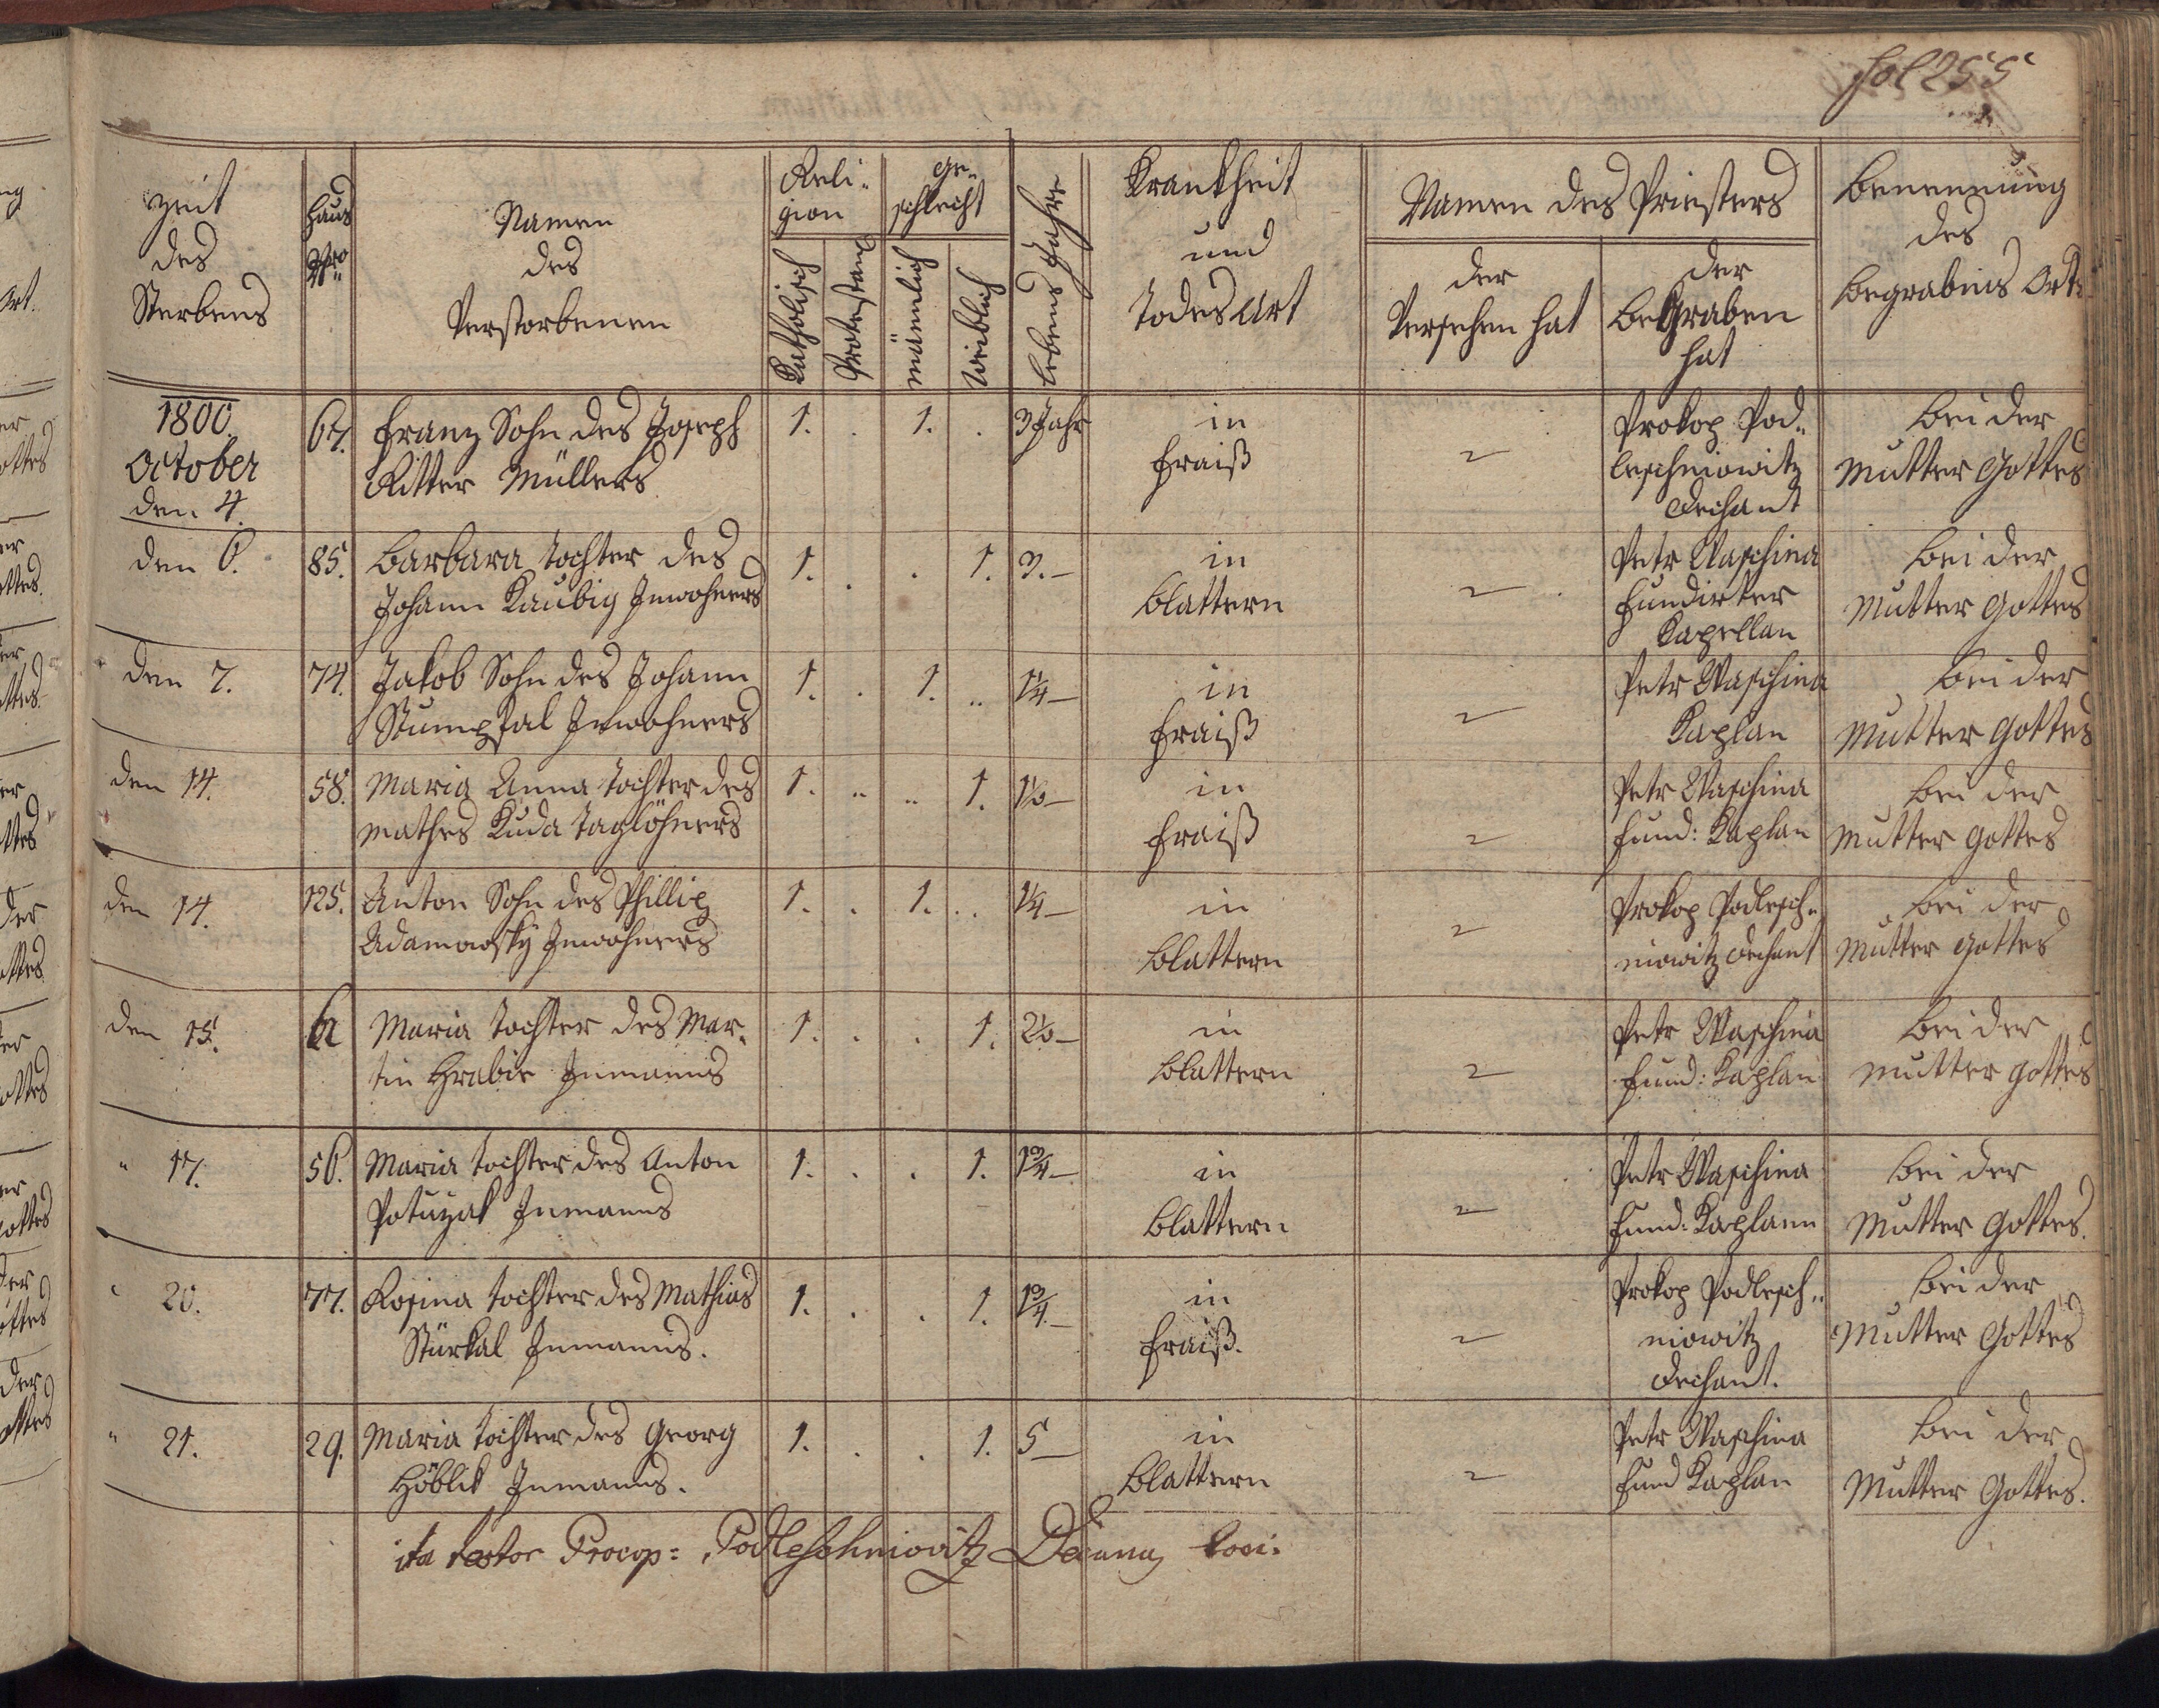 fol 255
Zeit des Sterbens | Haus Nro | Namen des Verstorbenen | Religion | Geschlecht | Lebens Jahre | Krankheit und Todes Art | Namen des Priesters | Benennung des Begrabnis Ort
Katholisch | Protestant | männlich | Weiblich | der Versehen hat | der Begraben hat
1800
October
den 4. | 67. | Franz Sohn des Joseph | 1. | . | 1. | . | 3 Jahr | in | Prokop Pod„ | bei der
Ritter Müllers | Fraiß | leschniowitz | Mutter Gottes
Dechant
den 6. | 85. | Barbara tochter des | 1. | . | . | 1. | 3.– | in | Petr Waschina | bei der
Johann Kaubig Inwohners | Blattern | Fundirter | Mutter Gottes
Kapellan
den 7. | 74. | Jakob Sohn des Johann | 1. | . | 1. | .. | 1¼– | in | Petr Waschina | bei der
Stumpfal Inwohners | Fraiß | Kaplan | Mutter Gottes
den 14. | 58. | Maria Anna tochter des | 1. | .. | .. | 1. | 1½– | in | Petr Waschina | bei der
Mathes Kuda taglöhners | Fraiß | Fund: Kaplan | Mutter Gottes
den 14. | 125. | Anton Sohn des Phillip | 1. | . | 1. | .. | 1¼– | in | Prokop Podlesch„ | bei der
Adamowsky Inwohners | Blattern | niowitz Dechant | Mutter Gottes
den 15. | Maria tochter des Mar„ | 1. | . | . | 1. | 2½– | in | Petr Waschina | bei der
tin Hrabie Inmanns | Blattern | Fund: Kaplan | Mutter Gottes
" 17. | 56. | Maria tochter des Anton | 1. | . | . | 1. | 1¾– | in | Petr Waschina | bei der
Potuzak Inmanns | Blattern | Fund: Kaplann | Mutter Gottes.
" 20. | 77. | Rosina tochter des Mathias | 1. | . | . | 1. | 1¾– | in | Prokop Podlesch„ | bei der
Stürkal Inmanns. | Fraiß. | niowitz | Mutter Gottes
Dechant.
" 21. | 29. | Maria tochter des Georg | 1. | . | . | 1. | 5– | in | Petr Waschina | bei der
Höblik Inmanns. | Blattern | Fund Kaplan | Mutter Gottes.
ita testor Procop: Podleschniovitz Decanus loci.